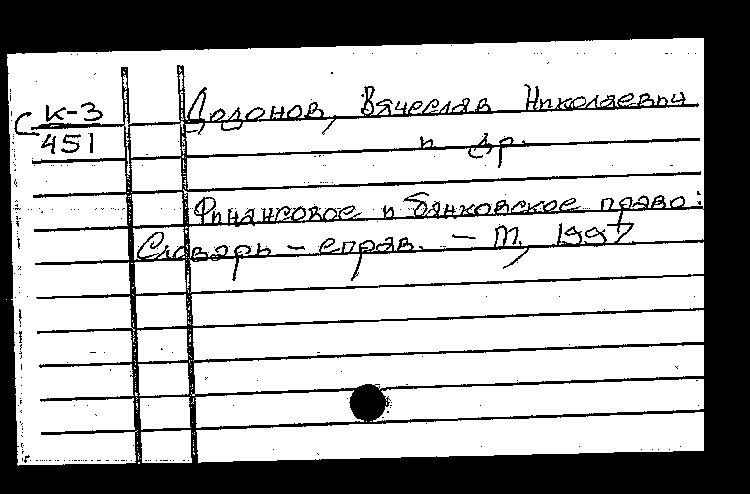 С К-3
451
Додонов, Вячеслав Николаевич
и др.
Финансовое и банковское право:
Словарь - справ. - М, 1997